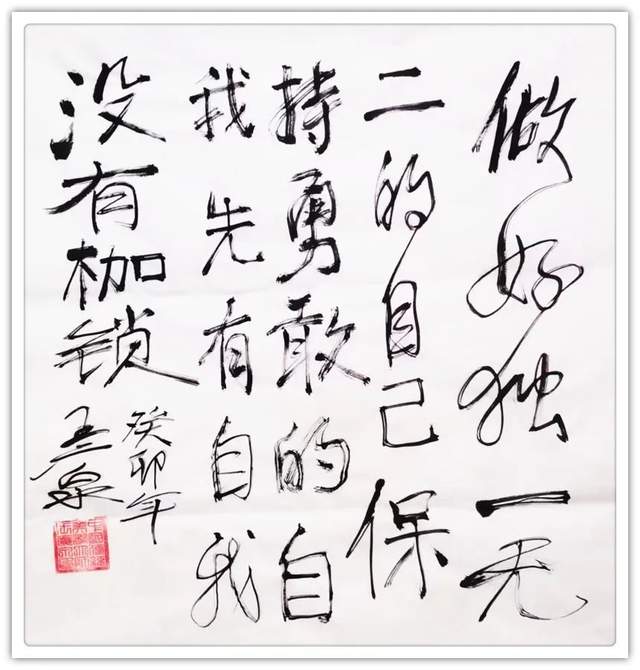 做好独一无
二的自己保
持勇敢的自
我先有自我
没有枷锁
癸卯年